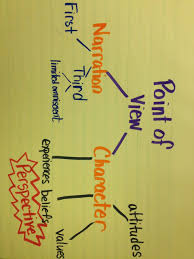 Point of
View
Narration
First
Third
limited omniscient
Character
attitudes
values
beliefs
experiences
Perspective